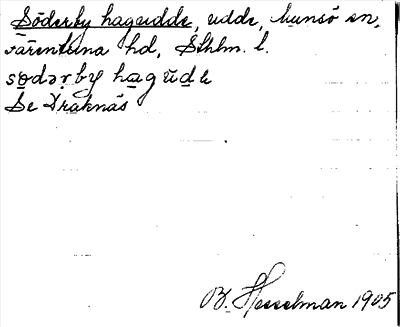 Söderby hagudde, udde, Munsö sn,
Färentuna hd, Sthlm. l.
södərby hagŭde
Se Träknäs
B. Hesselman 1905